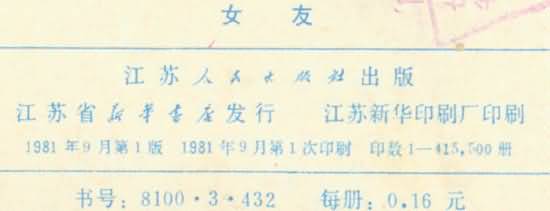 女友
江苏人民出版社出版
江苏省新华书店发行 江苏新华印刷厂印刷
1981年9月第1版 1981年9月第1次印刷 印数1—415,500册
书号：8100·3·432 每册：0.16元